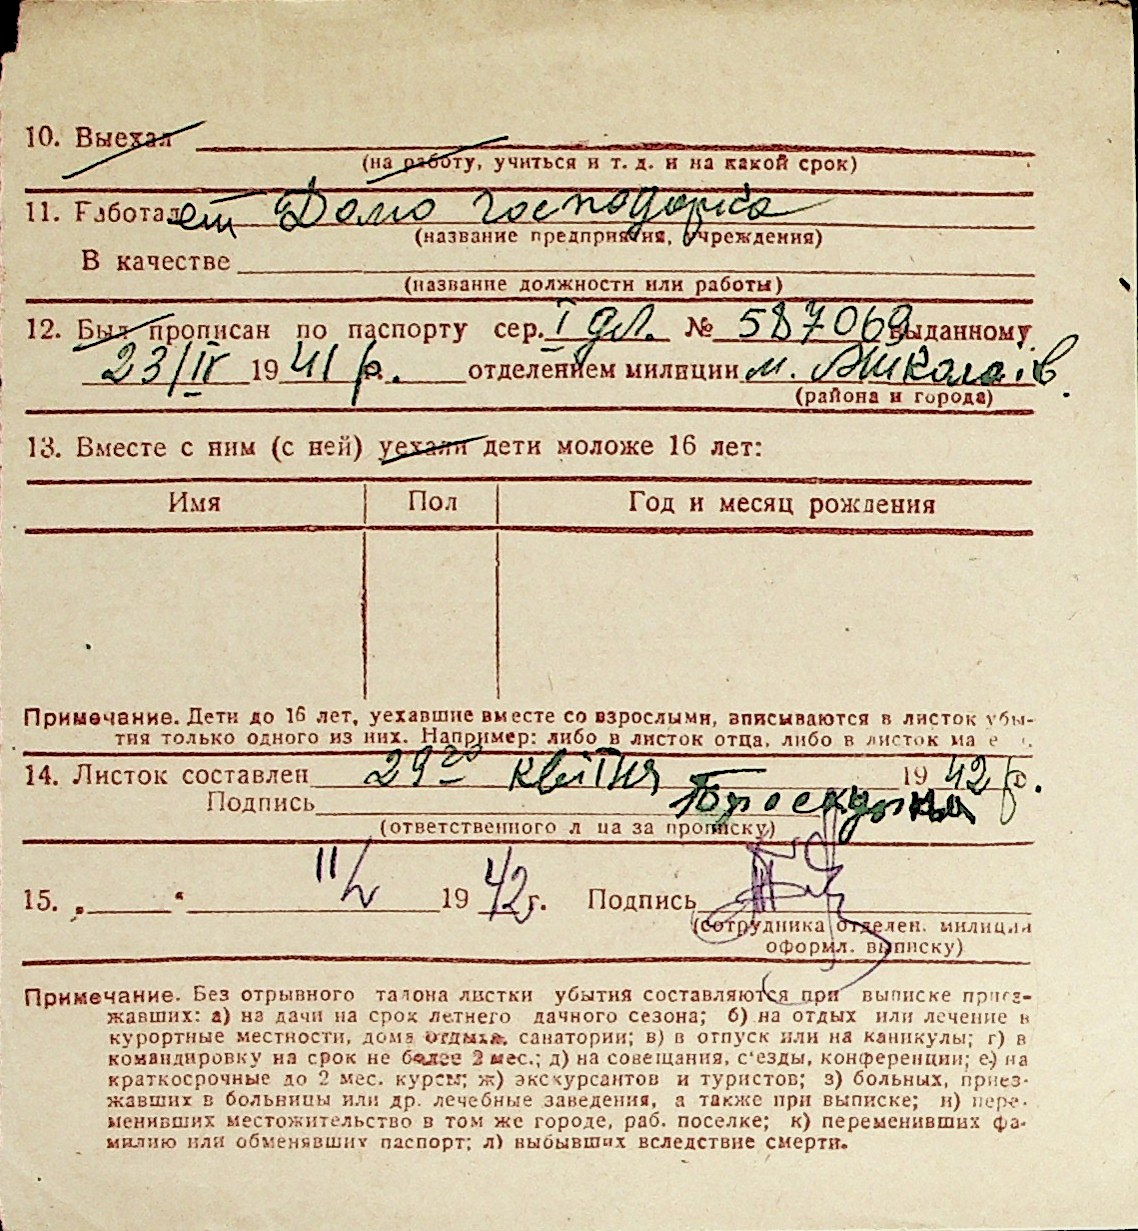 10. Выехал
(на работу, учиться и т. д. и на какой срок)
11. Работает Домо господарка
(название предприятия, учреждения)
В качестве
(название должности или работы)
12. Был прописан по паспорту сер. I № 587069 выданному
23/IV 1941 р. отделением милиции м. Миколаїв.
(района и города)
13. Вместе с ним (с ней) уехали дети моложе 16 лет:
Имя Пол Год и месяц рождения
Примечание. Дети до 16 лет, уехавшие вместе со взрослыми, вписываются в листок убы-
тия только одного из них. Например: либо в листок отца, либо в листок ма
14. Листок составлен 29го квітня 1942 р.
Подпись
(ответственного лица за прописку)
15. „ “ 11/V 1942 г. Подпись
(сотрудника отделен. милиции
оформл. выписку)
Примечание. Без отрывного талона листки убытия составляются при выписке приез-
жавших: а) на дачи на срок летнего дачного сезона; б) на отдых или лечение в
курортные местности, дома отдыха, санатории; в) в отпуск или на каникулы; г) в
командировку на срок не более 2 мес.; д) на совещания, с'езды, конференции; е) на
краткосрочные до 2 мес. курсы; ж) экскурсантов и туристов; з) больных, приез-
жавших в больницы или др. лечебные заведения, а также при выписке; и) пере-
менивших местожительство в том же городе, раб. поселке; к) переменивших фа-
милию или обменявших паспорт; л) выбывших вследствие смерти.